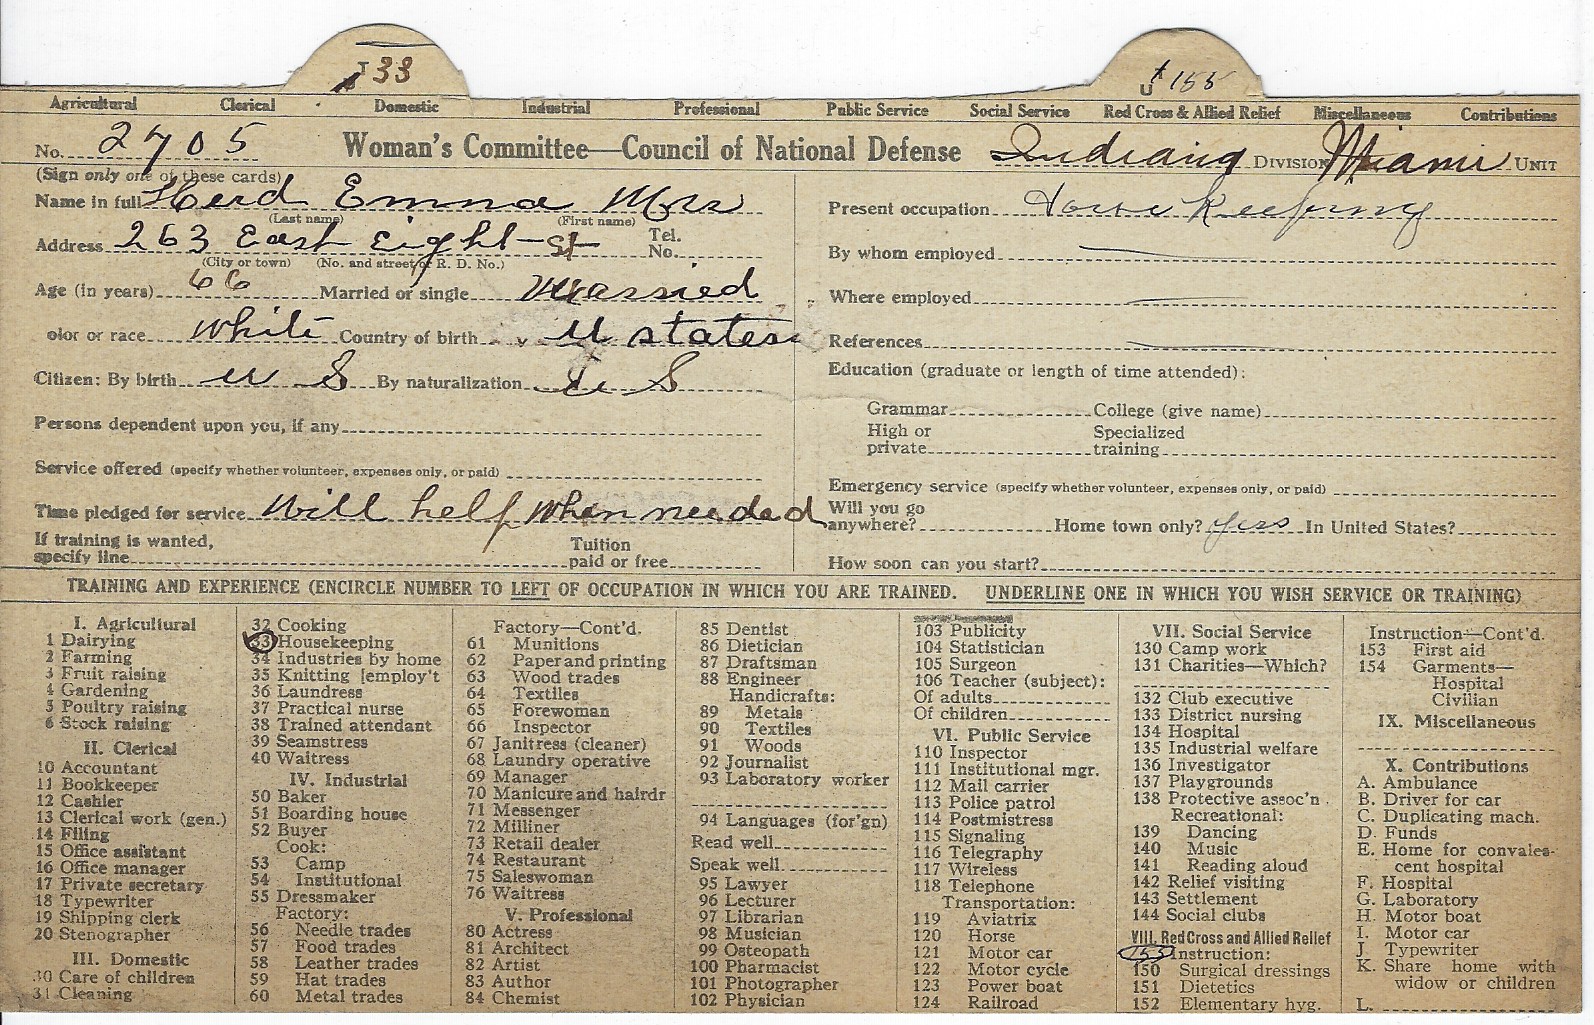 J 33
J 155
Agricultural Clerical Domestic Industrial Professional Public Service Social Service Red Cross & Allied Relief Miscellaneous Contributions
No. 2705 Woman's Committee—Council of National Defense Indiana DIVISION Miami UNIT
(Sign only one of these cards)
Name in full Herd Emma Mrs
(Last name) (First name)
Address 263 East Eight-st Tel. No.
(City or town) (No. and street or R. D. No.)
Age (in years) 66 Married or single Married
olor or race White Country of birth U states
Citizen: By birth U S By naturalization U S
Persons dependent upon you, if any
Service offered (specify whether volunteer, expenses only, or paid)
Time pledged for service Will help when needed
If training is wanted, specify line Tuition paid or free
Present occupation House Keepering
By whom employed
Where employed
References
Education (graduate or length of time attended):
Grammar College (give name)
High or private Specialized training
Emergency service (specify whether volunteer, expenses only, or paid)
Will you go anywhere? Home town only? yess In United States?
How soon can you start?
TRAINING AND EXPERIENCE (ENCIRCLE NUMBER TO LEFT OF OCCUPATION IN WHICH YOU ARE TRAINED. UNDERLINE ONE IN WHICH YOU WISH SERVICE OR TRAINING)
I. Agricultural
1 Dairying
2 Farming
3 Fruit raising
4 Gardening
5 Poultry raising
6 Stock raising
II. Clerical
10 Accountant
11 Bookkeeper
12 Cashier
13 Clerical work (gen.)
14 Filing
15 Office assistant
16 Office manager
17 Private secretary
18 Typewriter
19 Shipping clerk
20 Stenographer
III. Domestic
30 Care of children
31 Cleaning
32 Cooking
33 Housekeeping
34 Industries by home
35 Knitting [employ't
36 Laundress
37 Practical nurse
38 Trained attendant
39 Seamstress
40 Waitress
IV. Industrial
50 Baker
51 Boarding house
52 Buyer
Cook:
53 Camp
54 Institutional
55 Dressmaker
Factory:
56 Needle trades
57 Food trades
58 Leather trades
59 Hat trades
60 Metal trades
Factory—Cont'd.
61 Munitions
62 Paper and printing
63 Wood trades
64 Textiles
65 Forewoman
66 Inspector
67 Janitress (cleaner)
68 Laundry operative
69 Manager
70 Manicure and hairdr
71 Messenger
72 Milliner
73 Retail dealer
74 Restaurant
75 Saleswoman
76 Waitress
V. Professional
80 Actress
81 Architect
82 Artist
83 Author
84 Chemist
85 Dentist
86 Dietician
87 Draftsman
88 Engineer
Handicrafts:
89 Metals
90 Textiles
91 Woods
92 Journalist
93 Laboratory worker
94 Languages (for'gn)
Read well
Speak well
95 Lawyer
96 Lecturer
97 Librarian
98 Musician
99 Osteopath
100 Pharmacist
101 Photographer
102 Physician
103 Publicity
104 Statistician
105 Surgeon
106 Teacher (subject):
Of adults
Of children
VI. Public Service
110 Inspector
111 Institutional mgr.
112 Mail carrier
113 Police patrol
114 Postmistress
115 Signaling
116 Telegraphy
117 Wireless
118 Telephone
Transportation:
119 Aviatrix
120 Horse
121 Motor car
122 Motor cycle
123 Power boat
124 Railroad
VII. Social Service
130 Camp work
131 Charities—Which?
132 Club executive
133 District nursing
134 Hospital
135 Industrial welfare
136 Investigator
137 Playgrounds
138 Protective assoc'n
Recreational:
139 Dancing
140 Music
141 Reading aloud
142 Relief visiting
143 Settlement
144 Social clubs
VIII. Red Cross and Allied Relief
155 Instruction:
150 Surgical dressings
151 Dietetics
152 Elementary hyg.
Instruction—Cont'd.
153 First aid
154 Garments—
Hospital
Civilian
IX. Miscellaneous
X. Contributions
A. Ambulance
B. Driver for car
C. Duplicating mach.
D. Funds
E. Home for convales-
cent hospital
F. Hospital
G. Laboratory
H. Motor boat
I. Motor car
J. Typewriter
K. Share home with
widow or children
L.